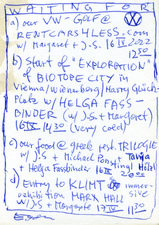 WAITING FOR
a) our VW-GOLF @
RENTCARS4LESS.com
w/ Margaret + J.S. 16 IV 2022
1230
b) Start of "EXPLORATION"
of BIOTOPE CITY in
Vienna/wienerberg/Harry Glück-
Platz w/ HELGA FASS-
BINDER (w/ J.S + Margaret)
16 IV 1430 (very cold)
c) our food @ greek rest. TRILOGIE
w/ J.S + Michael
+ Helga Fassbinder 16 IV
d) Entry to KLIMT immer-
sive
exhibition MARX HALL
w/ J.S + Margarete 17 IV 1130